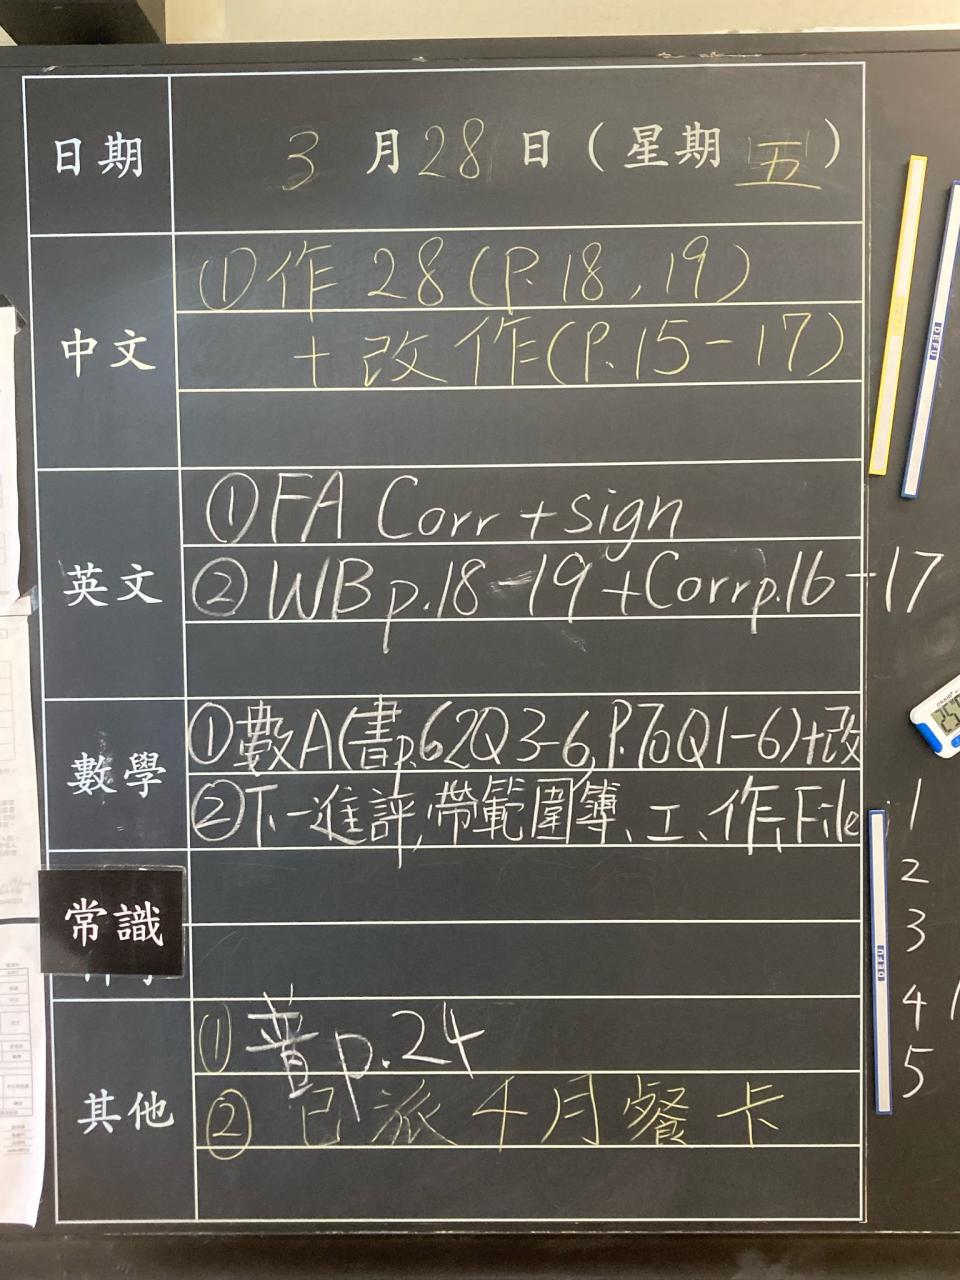 日期 3月28日(星期五)
中文
①作28(P.18,19)
+改作(P.15-17)
英文
①FA Corr+sign
②WBp.18-19+Corrp.16-17
數學
①數A(書p.62Q3-6,P.70Q1-6)+改
②下一進評,帶範圍簿、工、作、File
常識
其他
①普p.24
②已派4月餐卡
1
2
3
4
5